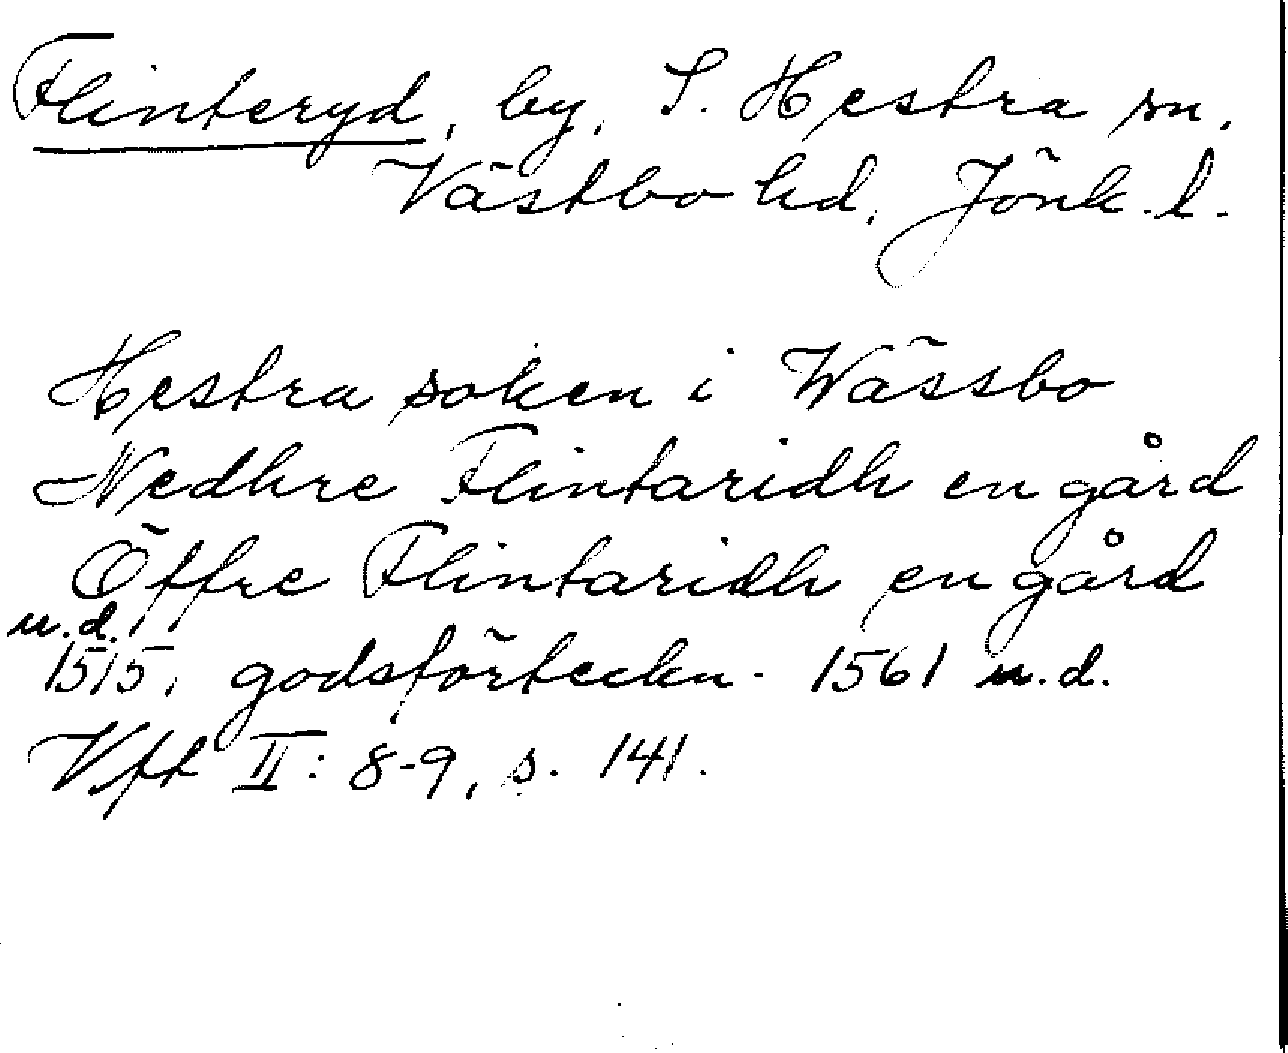 Flinteryd, by, S. Hestra sn,
Västbo hd, Jönk. l.
Hestra soken i Wässbo
Nedhre Flintaridh en gård
Öffre Flintaridh en gård
u.d.
1515, godsförteckn. 1561 u.d.
Vff II: 8-9, s. 141.